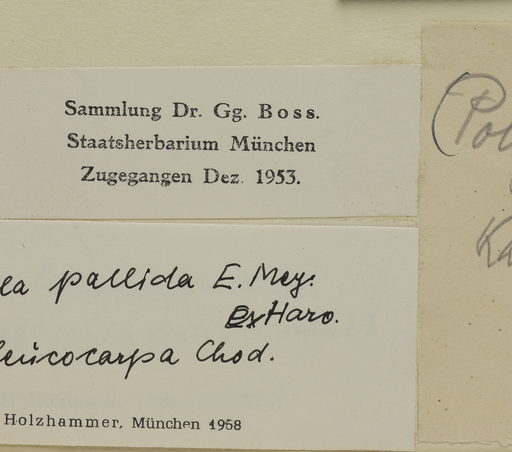 Sammlung Dr. Gg. Boss.
Staatsherbarium München
Zugegangen Dez. 1953.
la pallida E. Mey.
ex Harv.
leucocarpa Chod.
Holzhammer, München 1958
(Pol
Ka